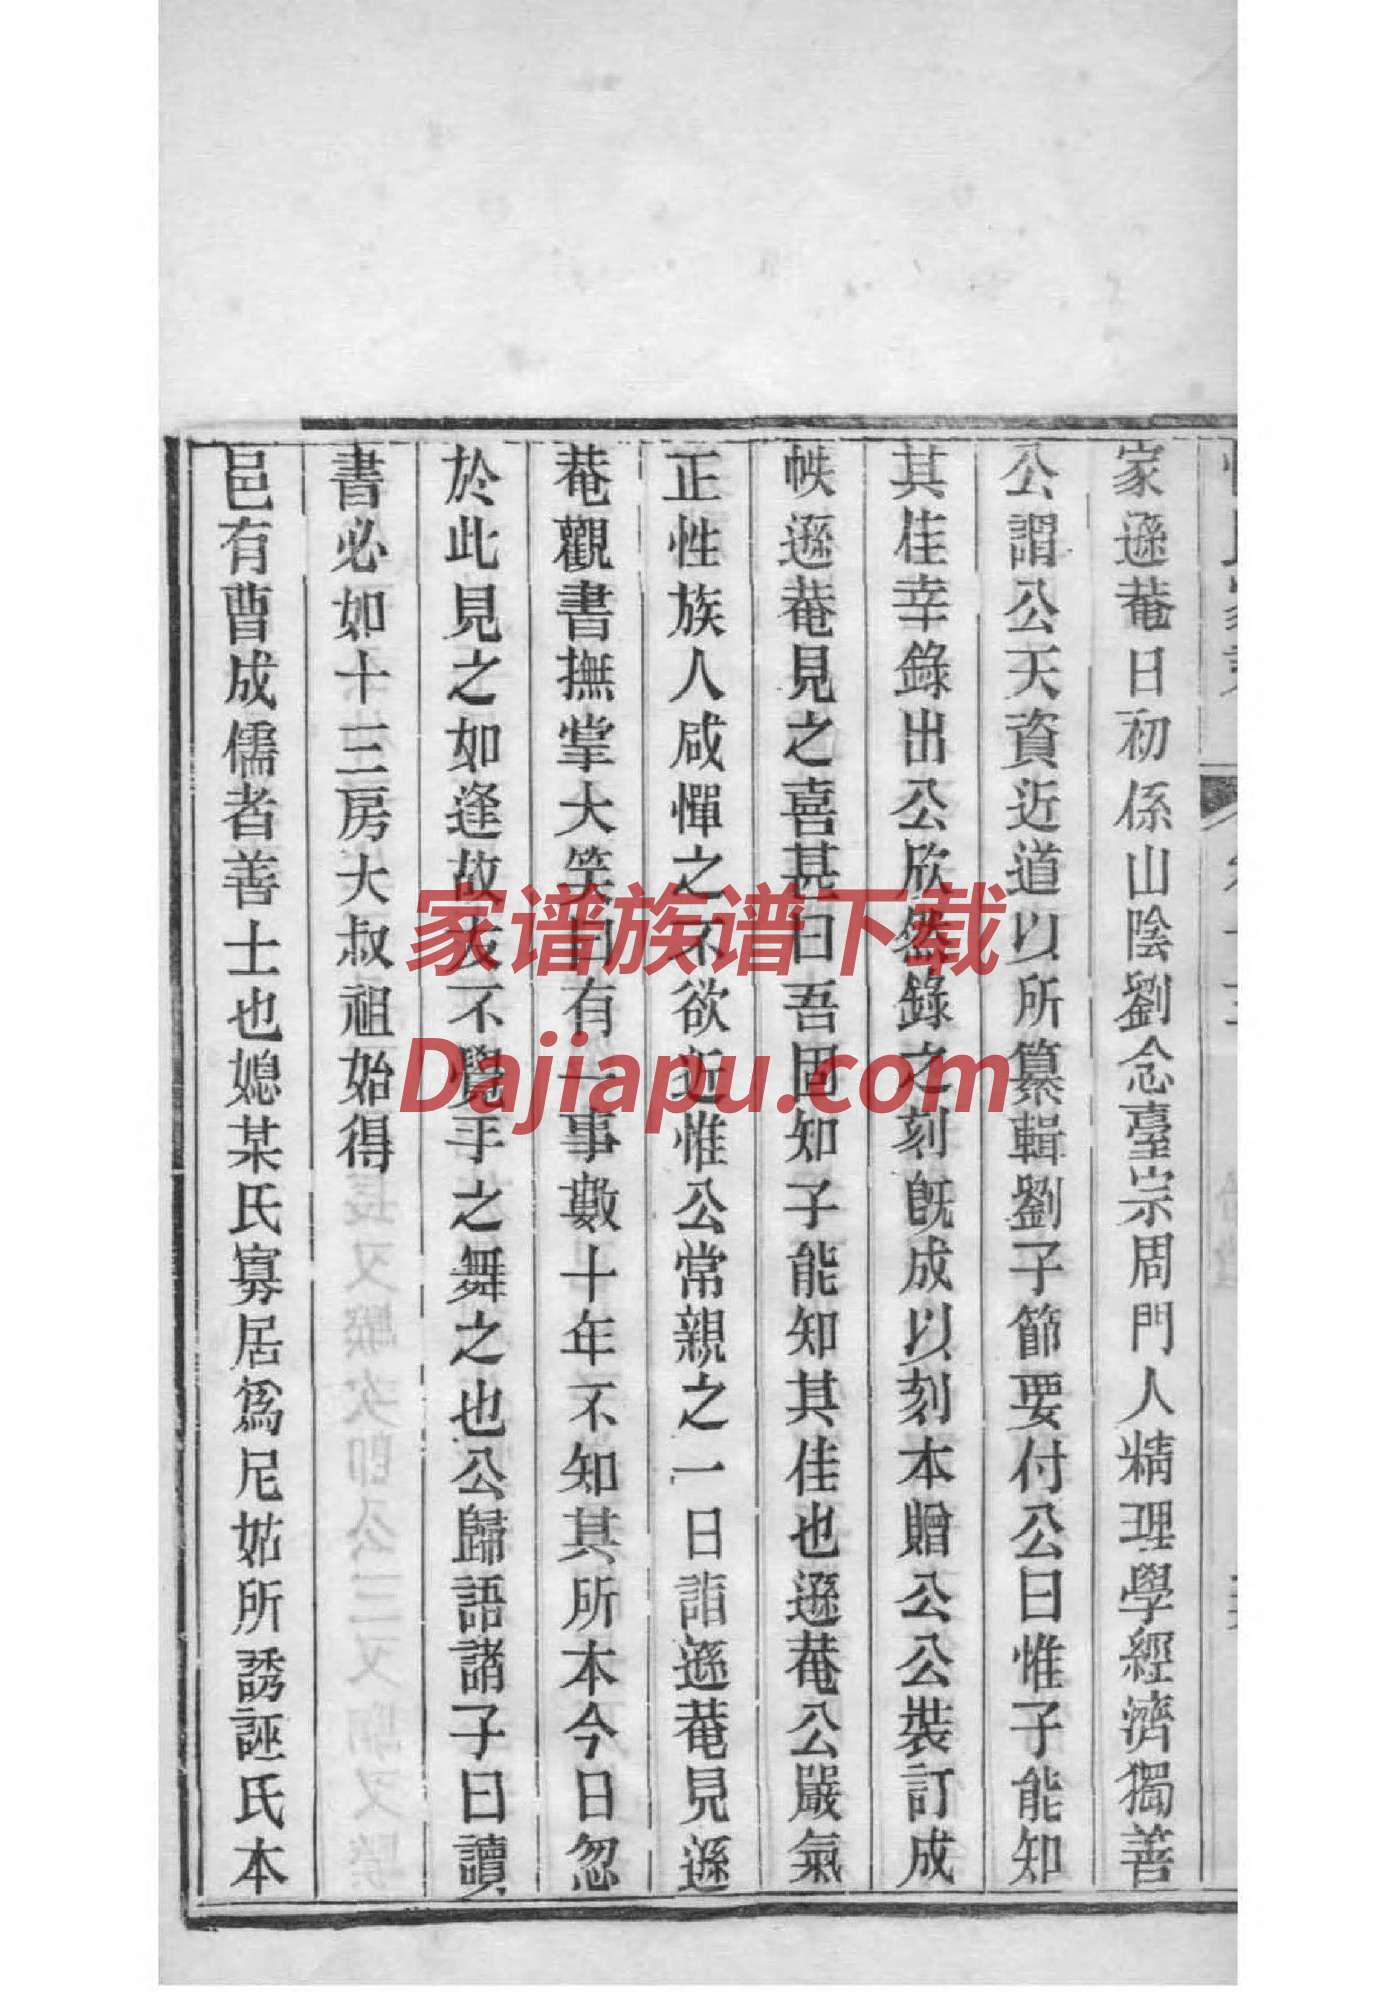 家遜菴日初係山陰劉念臺宗周門人精理學經濟獨善
公謂公天資近道以所纂輯劉子節要付公曰惟子能知
其佳幸錄出公欣然錄之刻既成以刻本贈公公裝訂成
帙遜菴見之喜甚曰吾固知子能知其佳也遜菴公嚴氣
正性族人咸憚之不欲近惟公常親之一日詣遜菴見遜
菴觀書撫掌大笑曰有一事數十年不知其所本今日忽
於此見之如逢故友不覺手之舞之也公歸語諸子曰讀
書必如十三房大叔祖始得
邑有曹成儒者善士也媳某氏寡居爲尼姑所誘誣氏本
家谱族谱下载
Dajiapu.com